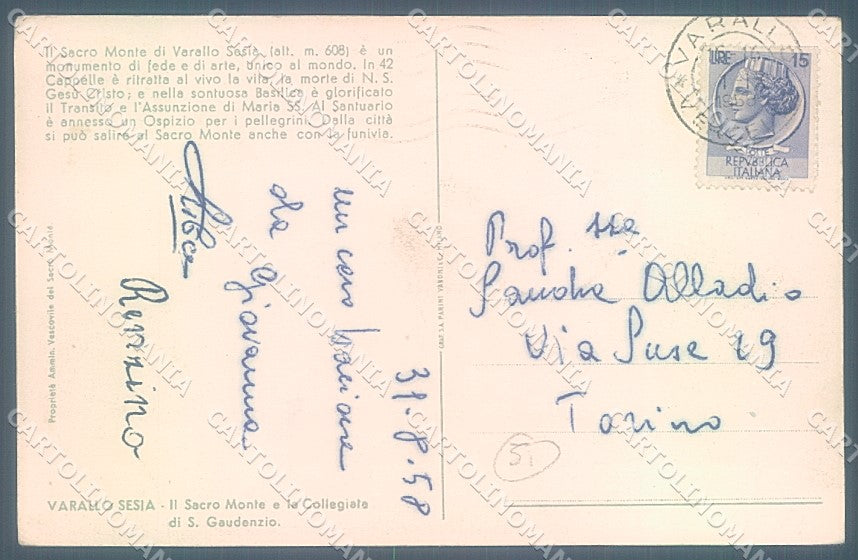 Il Sacro Monte di Varallo Sesia (alt. m. 608) è un
monumento di fede e di arte, unico al mondo. In 42
Cappelle è ritratta al vivo la vita, la morte di N. S.
Gesù Cristo; e nella sontuosa Basilica è glorificato
il Transito e l'Assunzione di Maria SS. Al Santuario
è annesso un Ospizio per i pellegrini. Dalla città
si può salire al Sacro Monte anche con la funivia.
31.8.58
un caro bacione
da Giovanna
Renzino
Proprietà Ammin. Vescovile del Sacro Monte
VARALLO SESIA - Il Sacro Monte e la Collegiata
di S. Gaudenzio.
VARALLO
LIRE 15
REPVBBLICA
ITALIANA
Prof.ssa
Sandra Alladio
Via Susa 29
Torino
51
CARTOLINOMANIA